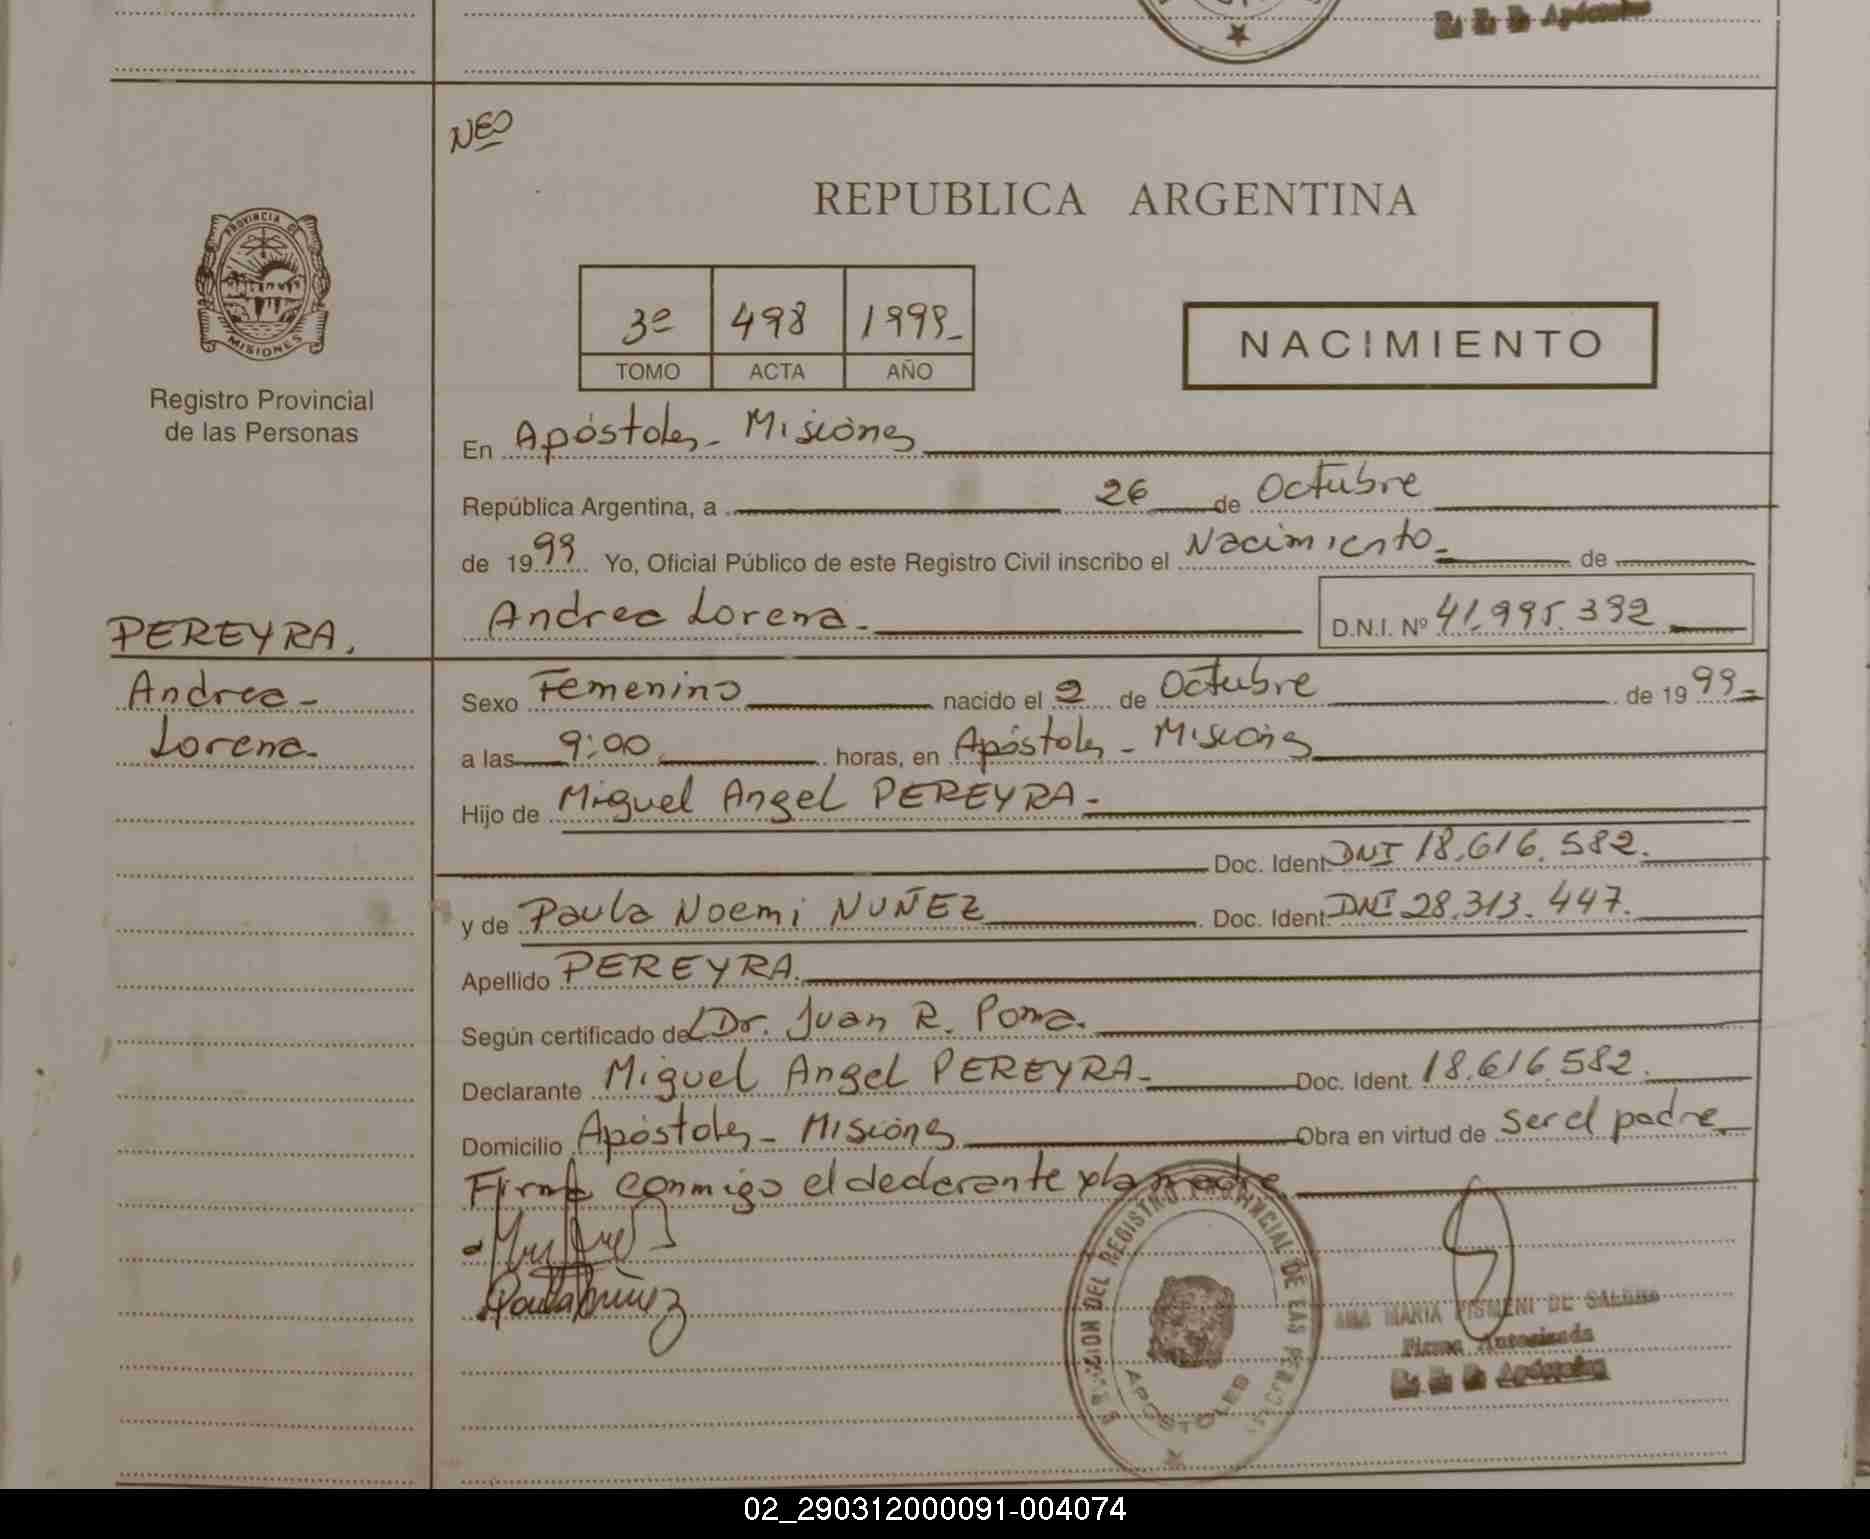 Apóstoles
NEO
REPUBLICA ARGENTINA
PROVINCIA DE
MISIONES
3º 498 1999_
TOMO ACTA AÑO
NACIMIENTO
Registro Provincial
de las Personas
En Apóstoles - Misiones
República Argentina, a 26 de Octubre
de 1999 Yo, Oficial Público de este Registro Civil inscribo el Nacimiento - de
PEREYRA.
Andrea Lorena. D.N.I. Nº 41.995.392
Andrea -
Lorena.
Sexo Femenino nacido el 2 de Octubre de 1999 -
a las 9:00 horas, en Apóstoles - Misiones
Hijo de Miguel Angel PEREYRA -
Doc. Ident. DNI 18.616.582.
y de Paula Noemi NUÑEZ Doc. Ident. DNI 28.313.447.
Apellido PEREYRA.
Según certificado del Dr. Juan R. Poma.
Declarante Miguel Angel PEREYRA - Doc. Ident. 18.616.582.
Domicilio Apóstoles - Misiones Obra en virtud de ser el padre
Firma conmigo el declarante y la madre
Paula Nuñez
DEL REGISTRO PROVINCIAL DE LAS PERSONAS
APOSTOLES
ANA MARIA DE
Firma Autorizada
Apóstoles
02_290312000091-004074